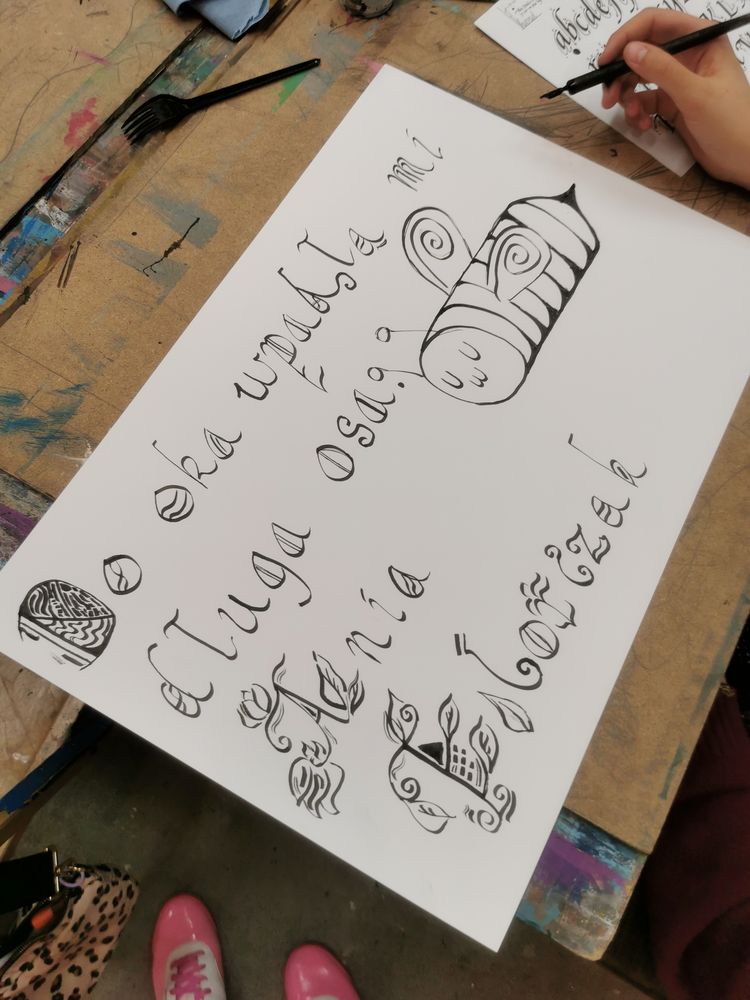 Do oka wpadła mi
długa osa.
Ania
abcdef